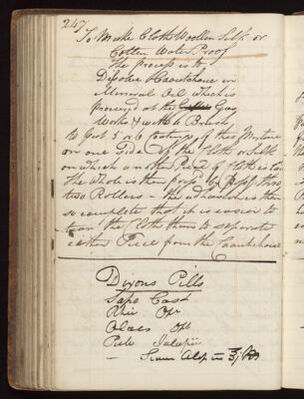 247
To Make Cloth Woollen Silk or
Cotton Water Proof
The process is to
Disolve Caoutchouc in
Mineral Oil which is
procured at the Gas
Works & with a Brush
to put 5 or 6 coatings of this Mixture
on one Side of the Cloth or Silk
on which another Piece of Cloth is
The whole is then pass'd thro
two Rollers – the adhesion is then
so complete that it is easier to
tear the Cloth than to separate
either Piece from the Caoutchouc
Dixons Pills
Sapo Cast
Rhei Opt
Aloes Opt
Pulv Jalapii